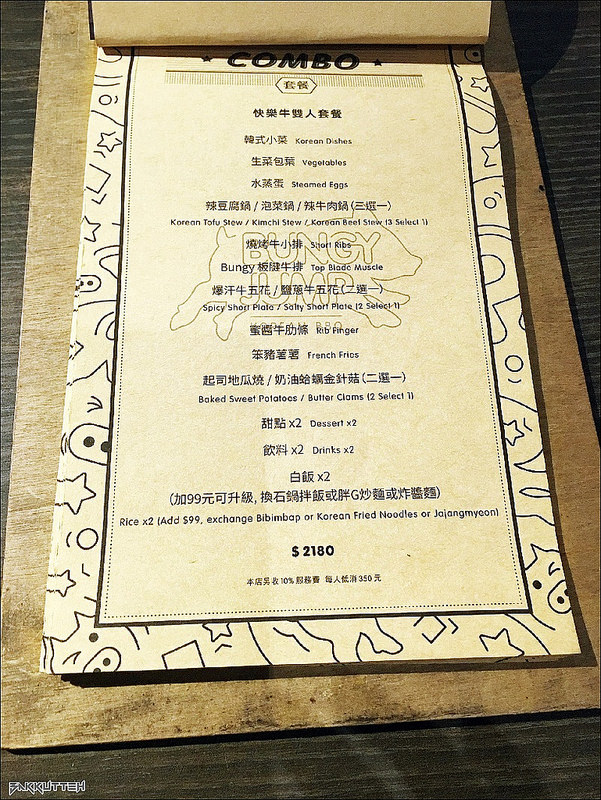 ★ COMBO ★
套餐
快樂牛雙人套餐
韓式小菜 Korean Dishes
生菜包葉 Vegetables
水蒸蛋 Steamed Eggs
辣豆腐鍋 / 泡菜鍋 / 辣牛肉鍋(三選一)
Korean Tofu Stew / Kimchi Stew / Korean Beef Stew (3 Select 1)
燒烤牛小排 Short Ribs
BUNGY
Bungy 板腱牛排 Top Blade Muscle
JUMP
爆汗牛五花 / 鹽蔥牛五花(二選一)
Spicy Short Plate / Salty Short Plate (2 Select 1)
KOREAN BBQ
蜜醬牛肋條 Rib Finger
笨豬薯薯 French Fries
起司地瓜燒 / 奶油蛤蠣金針菇(二選一)
Baked Sweet Potatoes / Butter Clams (2 Select 1)
甜點 x2 Dessert x2
飲料 x2 Drinks x2
白飯 x2
(加99元可升級, 換石鍋拌飯或胖G炒麵或炸醬麵)
Rice x2 (Add $99, exchange Bibimbap or Korean Fried Noodles or Jajangmyeon)
$ 2180
本店另收10% 服務費 每人低消 350 元
BAKKUTTEH